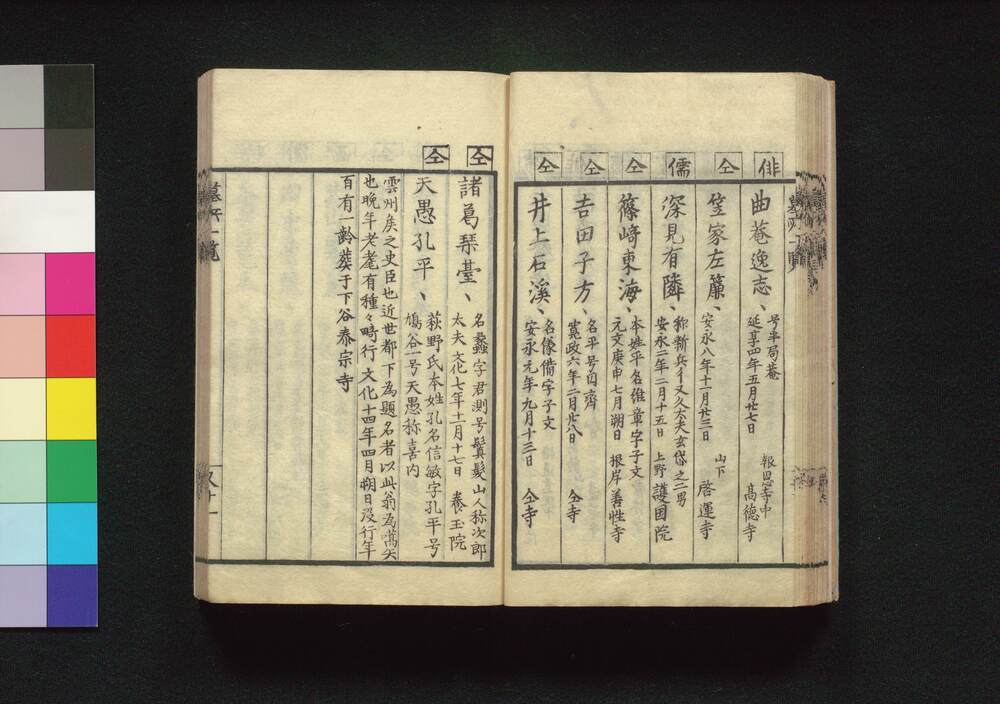 俳
曲菴逸志、
号半局菴
延享四年五月廿七日
報恩寺中
高徳寺
仝
笠家左簾、
安永八年十一月廿三日
山下
啓運寺
儒
深見有隣、
称新兵衛又久太夫玄岱之二男
安永二年二月十五日
上野護国院
仝
篠﨑東海、
本姓平名維章字子文
元文庚申七月朔日
根岸善性寺
仝
吉田子方、
名平号自齊
寛政六年二月廿八日
仝寺
仝
井上石溪、
名儀備字子文
安永元年九月十三日
仝寺
仝
諸葛琴臺、
名蠡字君測号鬢髪山人称次郎
太夫文化七年十一月十七日
養玉院
仝
天愚孔平、
萩野氏本姓孔名信敏字孔平号
鳩谷一号天愚称喜内
雲州矦之史臣也近世都下為題名者以此翁為嚆矢
也晩年老耄有種々畸行文化十四年四月朔日没行年
百有一齡葬于下谷泰宗寺
墓所一覧